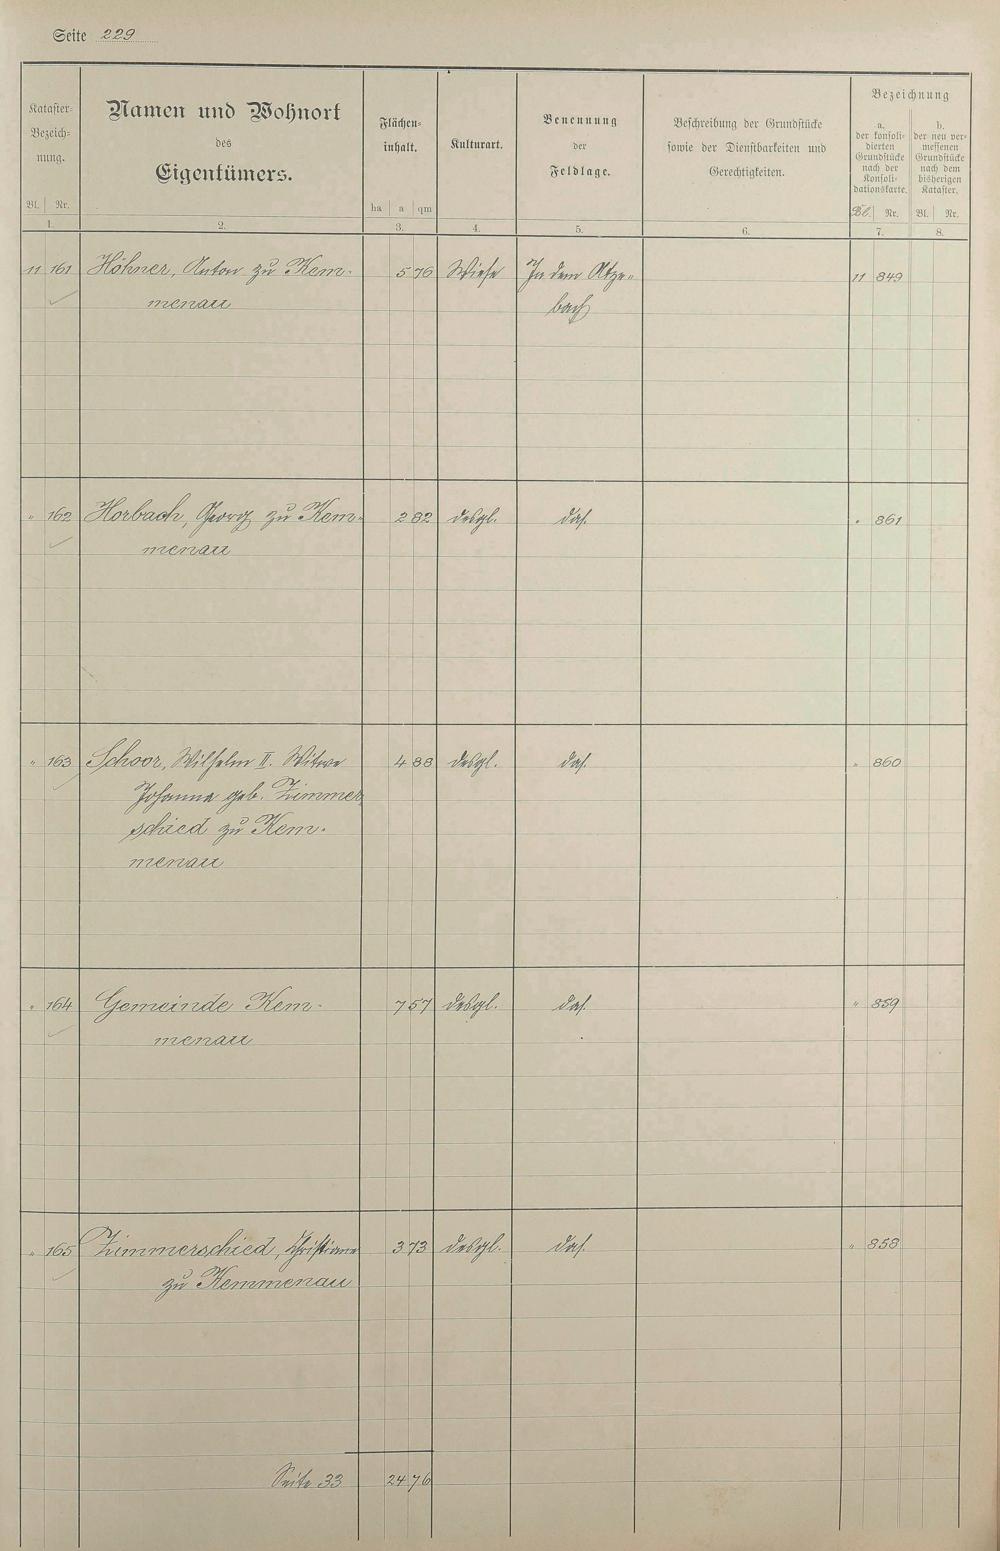 Seite 229
Kataster-
Bezeich-
nung.
Bl. Nr.
1.
Namen und Wohnort
des
Eigentümers.
2.
Flächen-
inhalt.
ha a qm
3.
Kulturart.
4.
Benennung
der
Feldlage.
5.
Beschreibung der Grundstücke
sowie der Dienstbarkeiten und
Gerechtigkeiten.
6.
Bezeichnung
a.
der konsoli-
dierten
Grundstücke
nach der
Konsoli-
dationskarte.
Bl. Nr.
7.
b.
der neu ver-
messenen
Grundstücke
nach dem
bisherigen
Kataster.
Bl. Nr.
8.
11 161 Höhner, Anton zu Kem- 5 76 Wiese In dem 11 849
menau bach
" 162 Horbach, Georg zu Kem- 2 82 desgl. das. " 861
menau
" 163 Schoor, Wilhelm II. Witwe 4 88 desgl. das. " 860
Johanna geb. Zimmer
schied zu Kem-
menau
" 164 Gemeinde Kem- 7 57 desgl. das. " 859
menau
" 165 Zimmerschied, Christiane 3 73 desgl. das. " 858
zu Kemmenau
Seite 33 24 76